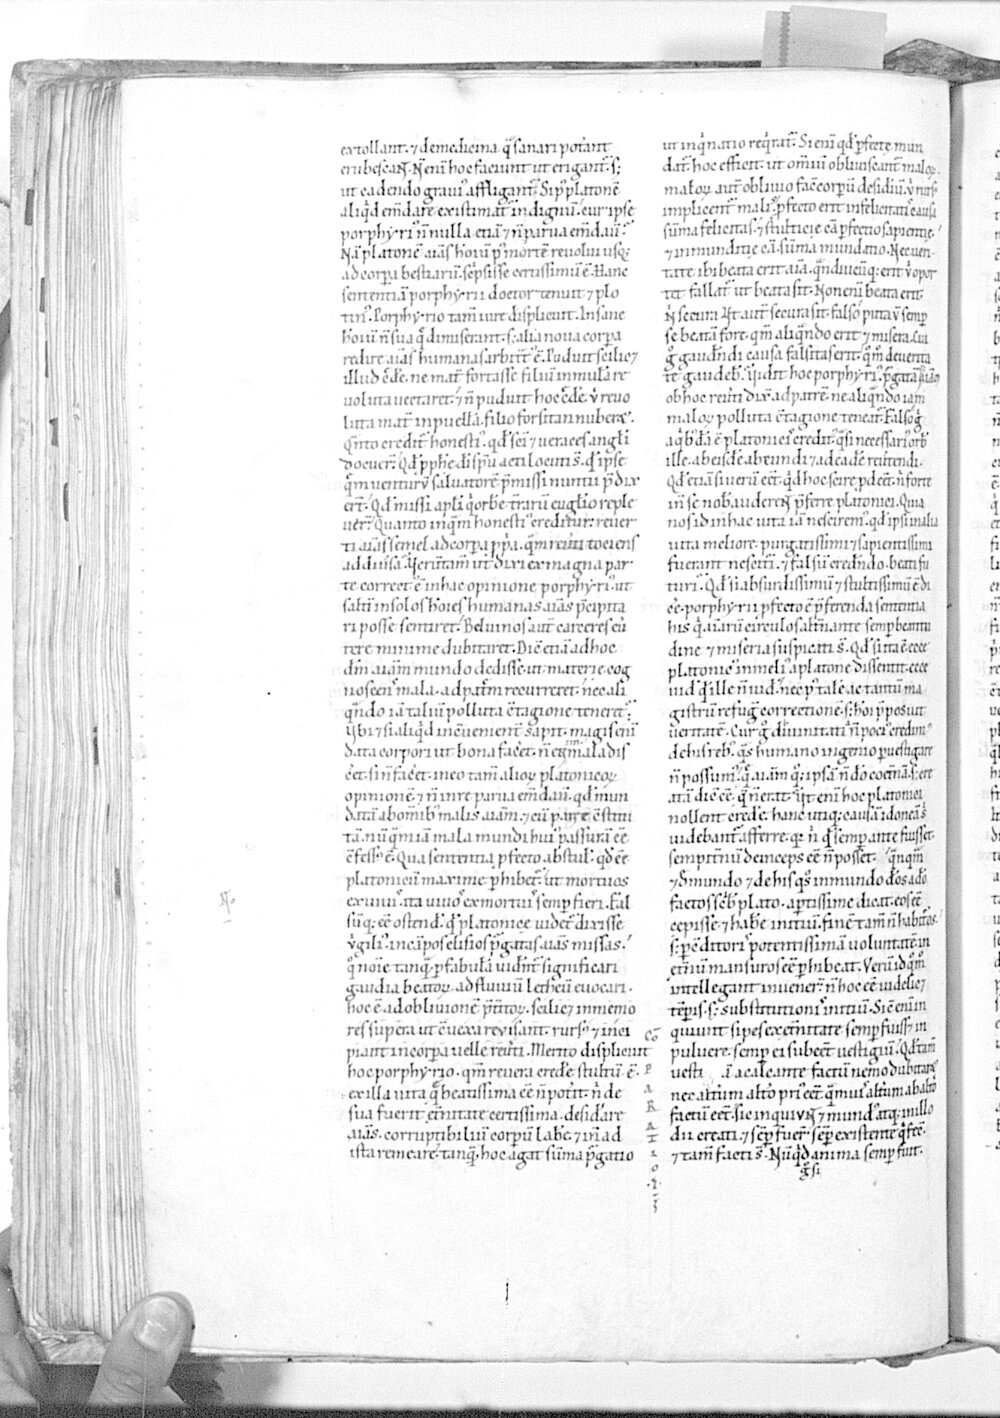 extollant. ⁊ de medicina q̄ sanari poterant
erubescant̄. N̄ eni hoc faciunt ut erigant̄. s;
ut cadendo graviꝰ affligant̄. Si p̄ platonē
aliq̇d em̄dare existimat̄ indignū. cur ipse
porphyriꝰ n̄nulla etiā ⁊ n̄ parva em̄davit?
Nā platonē aīas hoīum p̄ mortē revolvi usq;
ad corpa bestiarū scripsisse certissimū ē. Hanc
sententiā porphyrii doctor tenuit ⁊ plo
tinꝰ. Porphyrio tam̄ iure displicuit. In sane
hoīum n̄ sua q̄ dimiserant. s; alia nova corpa
redire aīas humanas arbitratꝰ ē. Puduit scilic⁊
illud credere. ne mat̄ fortasse filiū in mulā re
voluta vectaret. ⁊ n̄ puduit hoc credere. ubi revo
luta mat̄ in puellā. filio forsitan nuberet.
Q̄nto creditur honestiꝰ. qd̄ sc̄i ⁊ veraces angli
docuerunt. Qd̄ pphe dei spū acti locuti s̄. qd̄ ipse
quē venturū salvatorē p̄missi nuntii p̄dix
erunt. Qd̄ missi apli q̇ orbē terrarū euglio reple
verunt. Quanto inquā honestiꝰ creditur. rever
ti aīas semel ad corpa ppria. quā reverti tociens
ad diversa. Verūtam̄ ut dixi ex magna par
te correctꝰ ē in hac opinione porphyriꝰ. ut
saltē in solos hoīes humanas aīas p̄cipita
ri posse sentiret. Beluinos aut̄ carceres evertere
minime dubitaret. Dicit etiā ad hoc
dm̄ aīam mundo dedisse. ut materie cog
noscens mala. ad patrē recurreret. nec ali
q̄ndo iā taliū polluta c̄tagione teneret̄.
Ubi ⁊ si aliq̇d inconvenient̄ sapit. magis eni
data ē corpori ut bona faceret. n̄ eni mala dis
ceret. si n̄ faceret. in eo tam̄ aliorꝝ platonicorꝝ
opinionē ⁊ n̄ in re parva em̄davit. qd̄ mun
datā ab omnibꝰ malis aīam. ⁊ cū patre c̄stitu
tā. nūquā iā mala mundi huiꝰ passurā eē
c̄fessus ē. Qua sententia p̄fecto abstulit. qd̄ eē
platonicū maxime p̄hibetur. ut mortuos
ex vivis. ita vivos ex mortuis semp fieri. Fal
sūq; eē ostendit. qd̄ platonice videtur dixisse
v̓giliꝰ. in cāpos elisios p̄gatas aīas missas.
q̇ noīe tanquā p fabulā videntur significari
gaudia beatorꝝ. ad fluviū letheū evocari.
hoc ē ad oblivionē p̄teritorꝝ. Scilic⁊ inmemo
res supera ut c̄vexa revisant. rursꝰ ⁊ inci
piant in corpa velle reverti. Merito displicuit
hoc porphyrio. qm̄ revera credere stultū ē.
ex illa vita quę beatissima eē n̄ poterit. n̄ de
sua fuerit eternitate certissima. desiderare
aīas. corruptibiliū corporū labē. ⁊ inde ad
ista remeare. tanquā. hoc agat sūma p̄gatio
Cō
P
A
R
A
T
I
O
ut inq̇natio req̇rat̄. Si eni qd̄ p̄fecte mun
dat̄. hoc efficit. ut omniū obliviscant̄ malorꝝ.
malorꝝ aut̄ oblivio facit corporū desideriū. ubi rursꝰ
implicent̄ malis. p̄fecto erit infelicitatis causa
sūma felicitas. ⁊ stulticie causa p̄fectio sapientie.
⁊ inmunditie causa. sūma mundatio. Nec veri
tate ibi beata erit aīa. quādiucūq; erit ubi opor
tet fallat̄ ut beata sit. Non eni beata erit.
n̄ secura. Ut aut̄ secura sit. falso putat̄ semp
se beatā fore. qm̄ aliq̄ndo erit ⁊ misera. Cui
g̊ gaudendi causa falsitas erit. quom̄ de verita
te gaudebit? Vidit hoc porphyriꝰ. p̄gatāq; aīam
ob hoc reverti dixit ad patrē. ne aliq̄ndo iam
malorꝝ polluta c̄tagione teneat̄. Falso g̊
a quibꝰdā ē platonicis creditꝰ. quasi necessariꝰ orbis
ille. ab eisdē abeundi ⁊ ad eadē revertendi.
Qd̄ etiā si verū eēt. qd̄ hoc scire pdesset. n̄ forte
in se nobis auderent̄ p̄ferre platonici. Quia
nos id in hac vita iā nesciremꝰ. qd̄ ipsi in alia
vita meliore. purgatissimi ⁊ sapientissimi
fuerant nescituri. ⁊ falsū credendo. beati fu
turi. Qd̄ si absurdissimū ⁊ stultissimū ē di
cere. porphyrii p̄fecto ē p̄ferenda sententia
his q̇ aīarū circulos alternante semp beatitu
dine ⁊ miseria suspicati s̄. Qd̄ si ita ē. ecce
platonicꝰ in meliꝰ a platone dissentit. ecce
vidit q̇ ille n̄ vidit. nec p̄ talē ac tantū ma
gistrū refugit correctionē. s; hoī p̄posuit
veritatē. Cur g̊ n̄ divinitati potiꝰ credimꝰ
de his rebus. quas humano ingenio p̄vestigare
n̄ possumꝰ. quę aīam q;. ipsā n̄ dō coeternā. s; cre
atā dicit eē. quę n̄ erat. Ut eni hoc platonici
nollent credere. hanc utiq; causā idoneā s̄
videbantur afferre. quia n̄ qd̄ semp ante fuisset.
sempiternū deinceps eē n̄ posset. quanquā
⁊ de mundo ⁊ de his quos in mundo deos a dō
factos scribit plato. apertissime dicat eos eē
cepisse ⁊ habere initiū. finē tam̄ n̄ habituros.
s; p̄ c̄ditoris potentissimā voluntatē in
eternū mansuros eē p̄hibeat. Verū id quom̄
intellegant invenerunt. n̄ hoc eē videlic⁊
tempis. s; substitutionis initiū. Sic eni in
quiunt si pes ex eternitate semp fuisset in
pulvere. semp ei subeēt vestigiū. Qd̄ tam̄
vesti a calcante factū nemo dubitaret.
nec alterum altero priꝰ eēt. quāvis alterum ab altero
factū eēt. sic inquiunt ⁊ mundꝰ atq; in illo
dii creati. ⁊ semp fuerunt. semp existente q̇ fecit.
⁊ tam̄ facti s̄. Nūquid g̊ si anima semp fuit.